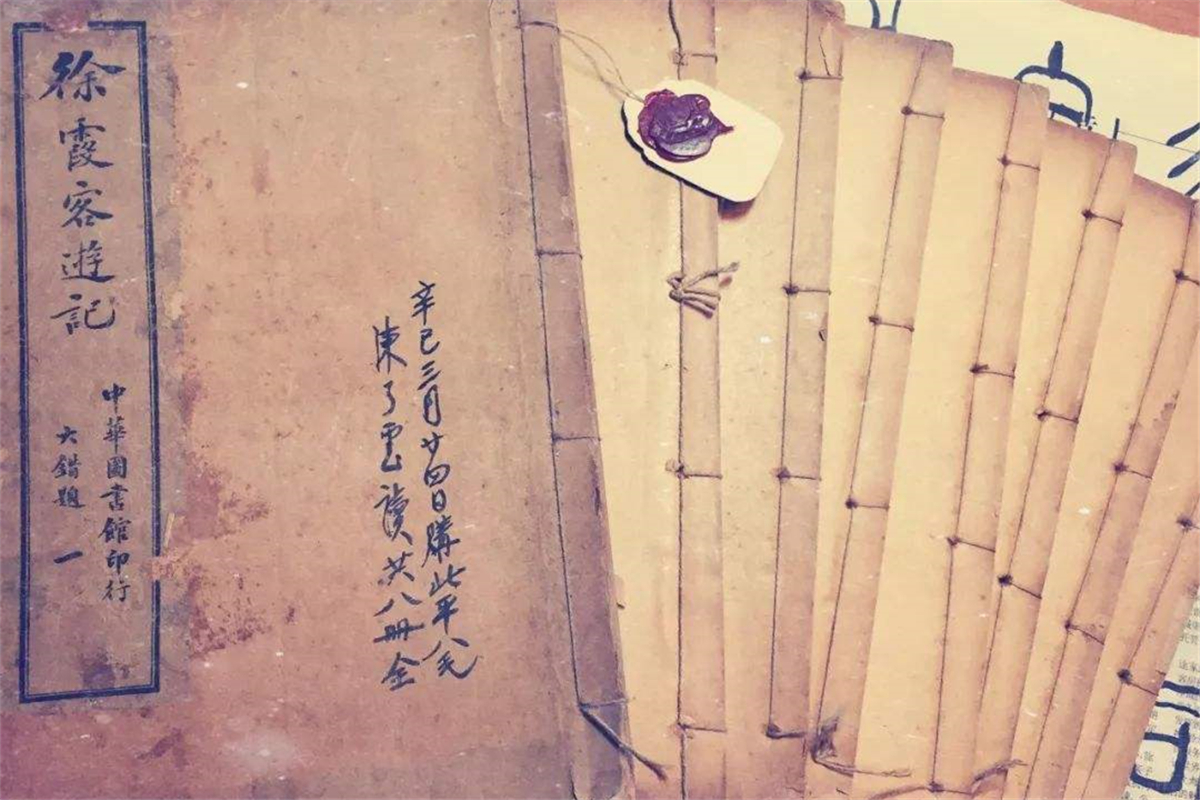 徐霞客遊記
中華圖書館印行
大錯題 一
辛巳三月廿四日購此平八元
陳了雲讀共八冊全